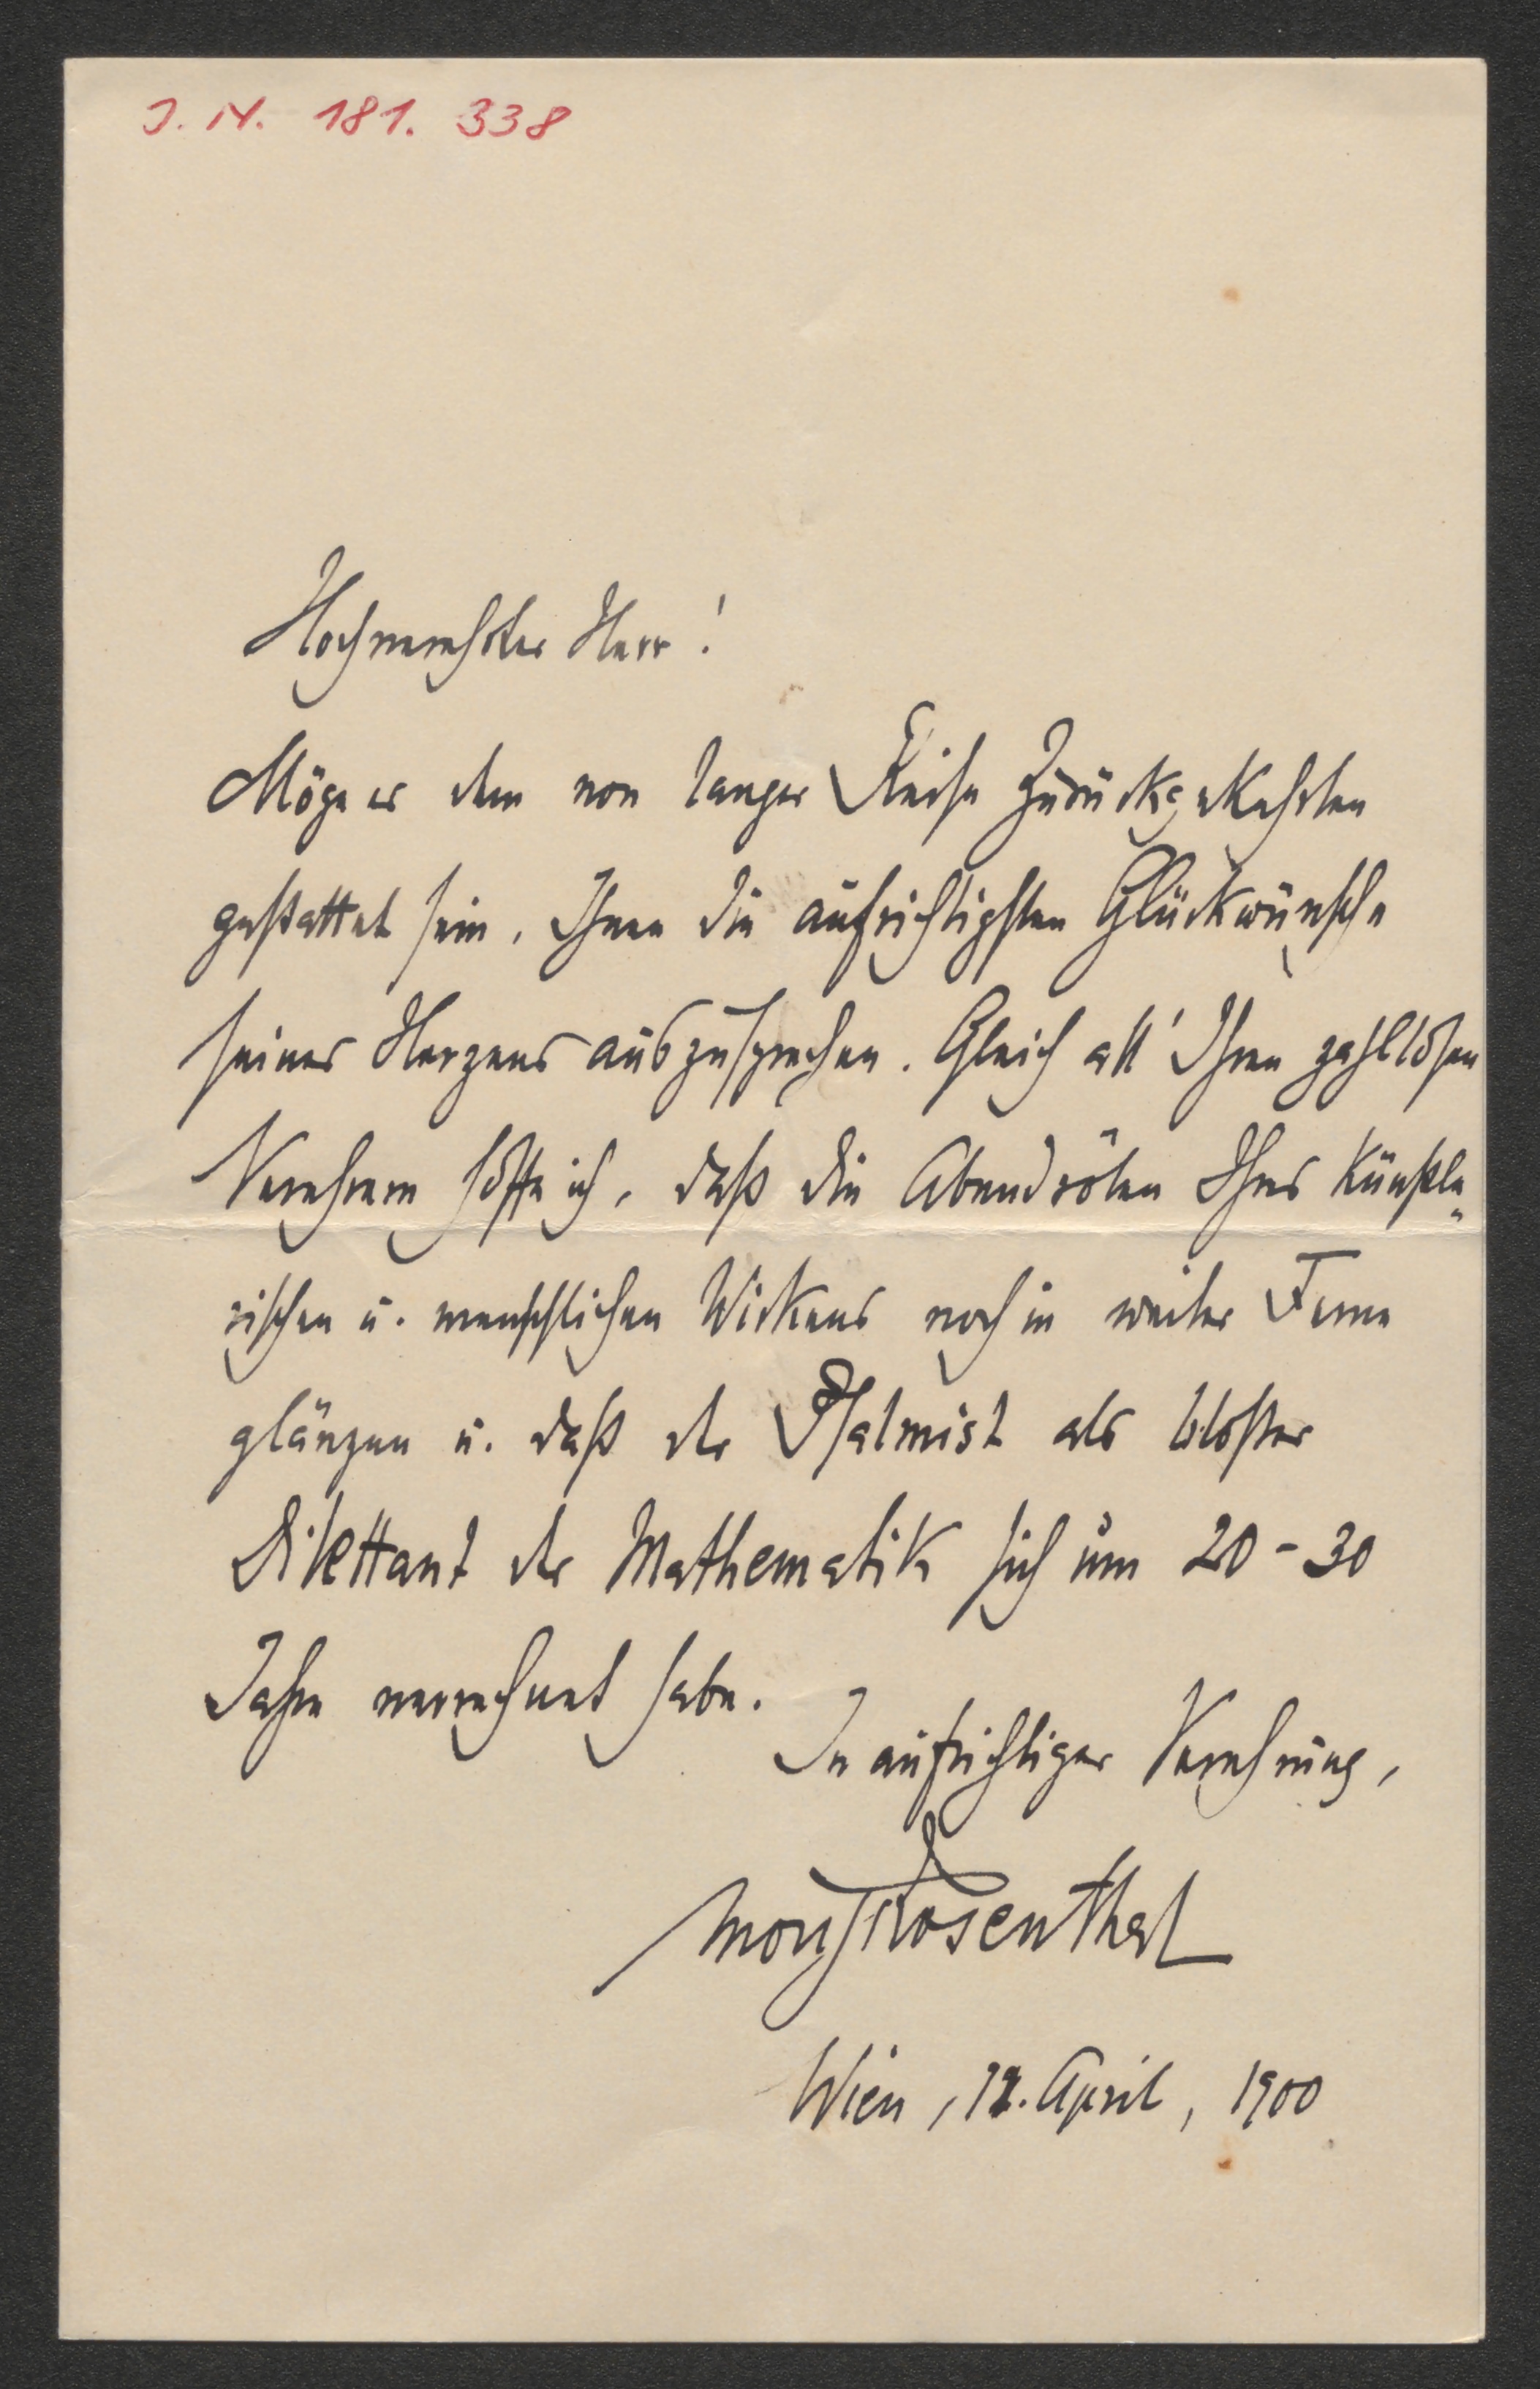 J. N. 181. 338
Hochverehrter Herr!
Möge es dem von langer Reise Zurückgekehrten
gestattet sein, Ihnen die aufrichtigsten Glückwünsche
seines Herzens auszusprechen. Gleich all' Ihren zahllosen
Verehrern hoffe ich, daß die Abendröten Ihres künstle„
rischen u. menschlichen Wirkens noch in weiter Ferne
glänzen u. daß der Psalmist als bloßer
Dilettant der Mathematik sich um 20-30
Jahre verrechnet habe.
In aufrichtiger Verehrung,
Moriz Rosenthal
Wien, 12. April, 1900